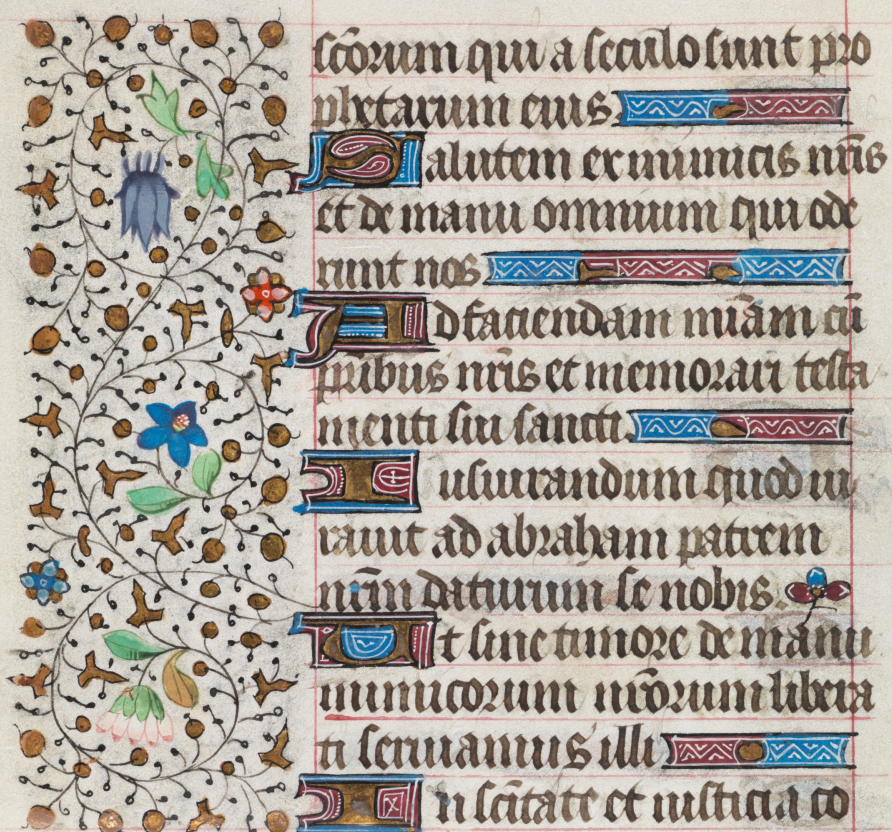 sc̄orum qui a seculo sunt pro
phetarum eius
Salutem ex inimicis nr̄is
et de manu omnium qui ode
runt nos
Ad faciendam mīam cū
pribus nr̄is et memorari testa
menti sui sancti.
Iusiurandum quod iu
rauit ad abraham patrem
nr̄m daturum se nobis.
Ut sine timore de manu
inimicorum nr̄orum libera
ti seruiamus illi
In sc̄itate et iusticia co